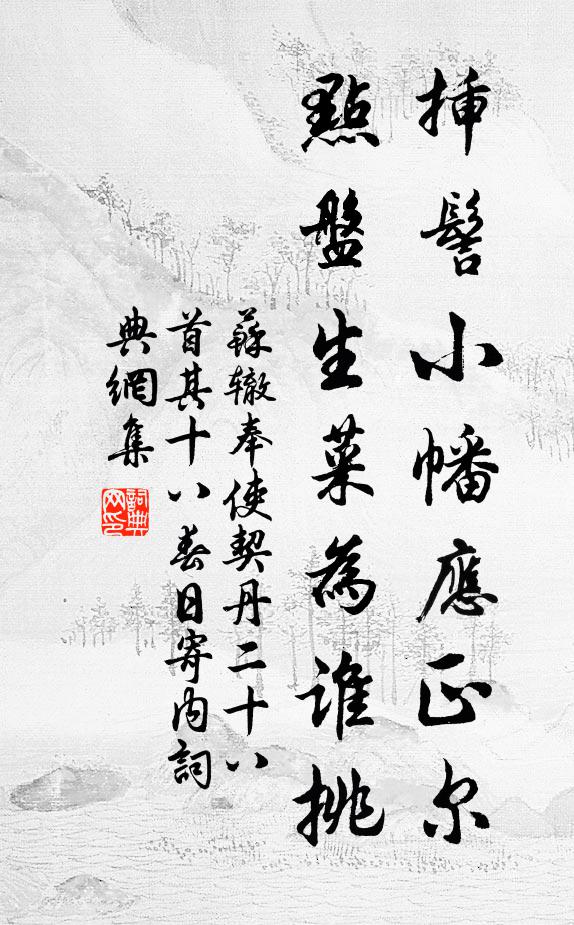 挿髻小幡應正尔
點盤生菜為誰挑
蘇辙奉使契丹二十八
首其十八春日寄内詞
典網集
詞典网印